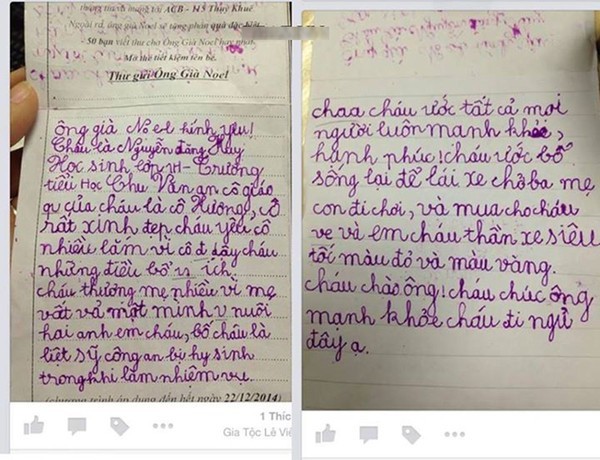 thông tra rõ thông tới ACB - 115 Thụy Khuê.
Ngoài ra, ông già Noel sẽ tặng phần quà đặc biệt
50 bạn viết thư cho Ông Già Noel hay nhất.
Mở thẻ tiết kiệm tên bé.
Thư gửi Ông Già Noel
ông già No el kính yêu!
Cháu là Nguyễn đăng Huy
Học sinh lớp 1H- Trường
tiểu Học Chu Văn an cô giáo
của cháu là cô Hương, cô
rất xinh đẹp cháu yêu cô
nhiều lắm vì cô dậy cháu
những điều bổ ích
cháu thương mẹ nhiều vì mẹ
vất vả một mình nuôi
hai anh em cháu, bố cháu là
liệt sỹ công an bị hy sinh
trong khi làm nhiệm vụ.
(chương trình áp dụng đến hết ngày 22/12/2014)
1 Thíc
Gia Tộc Lê Viê
chaa cháu ước tất cả mọi
người luôn mạnh khỏe,
hạnh phúc! cháu ước bố
sống lại để lái xe chở ba mẹ
con đi chơi, và mua cho cháu
ve và em cháu thần xe siêu
tốc màu đỏ và màu vàng.
cháu chào ông! cháu chúc ông
mạnh khỏe cháu đi ngủ
đây ạ.